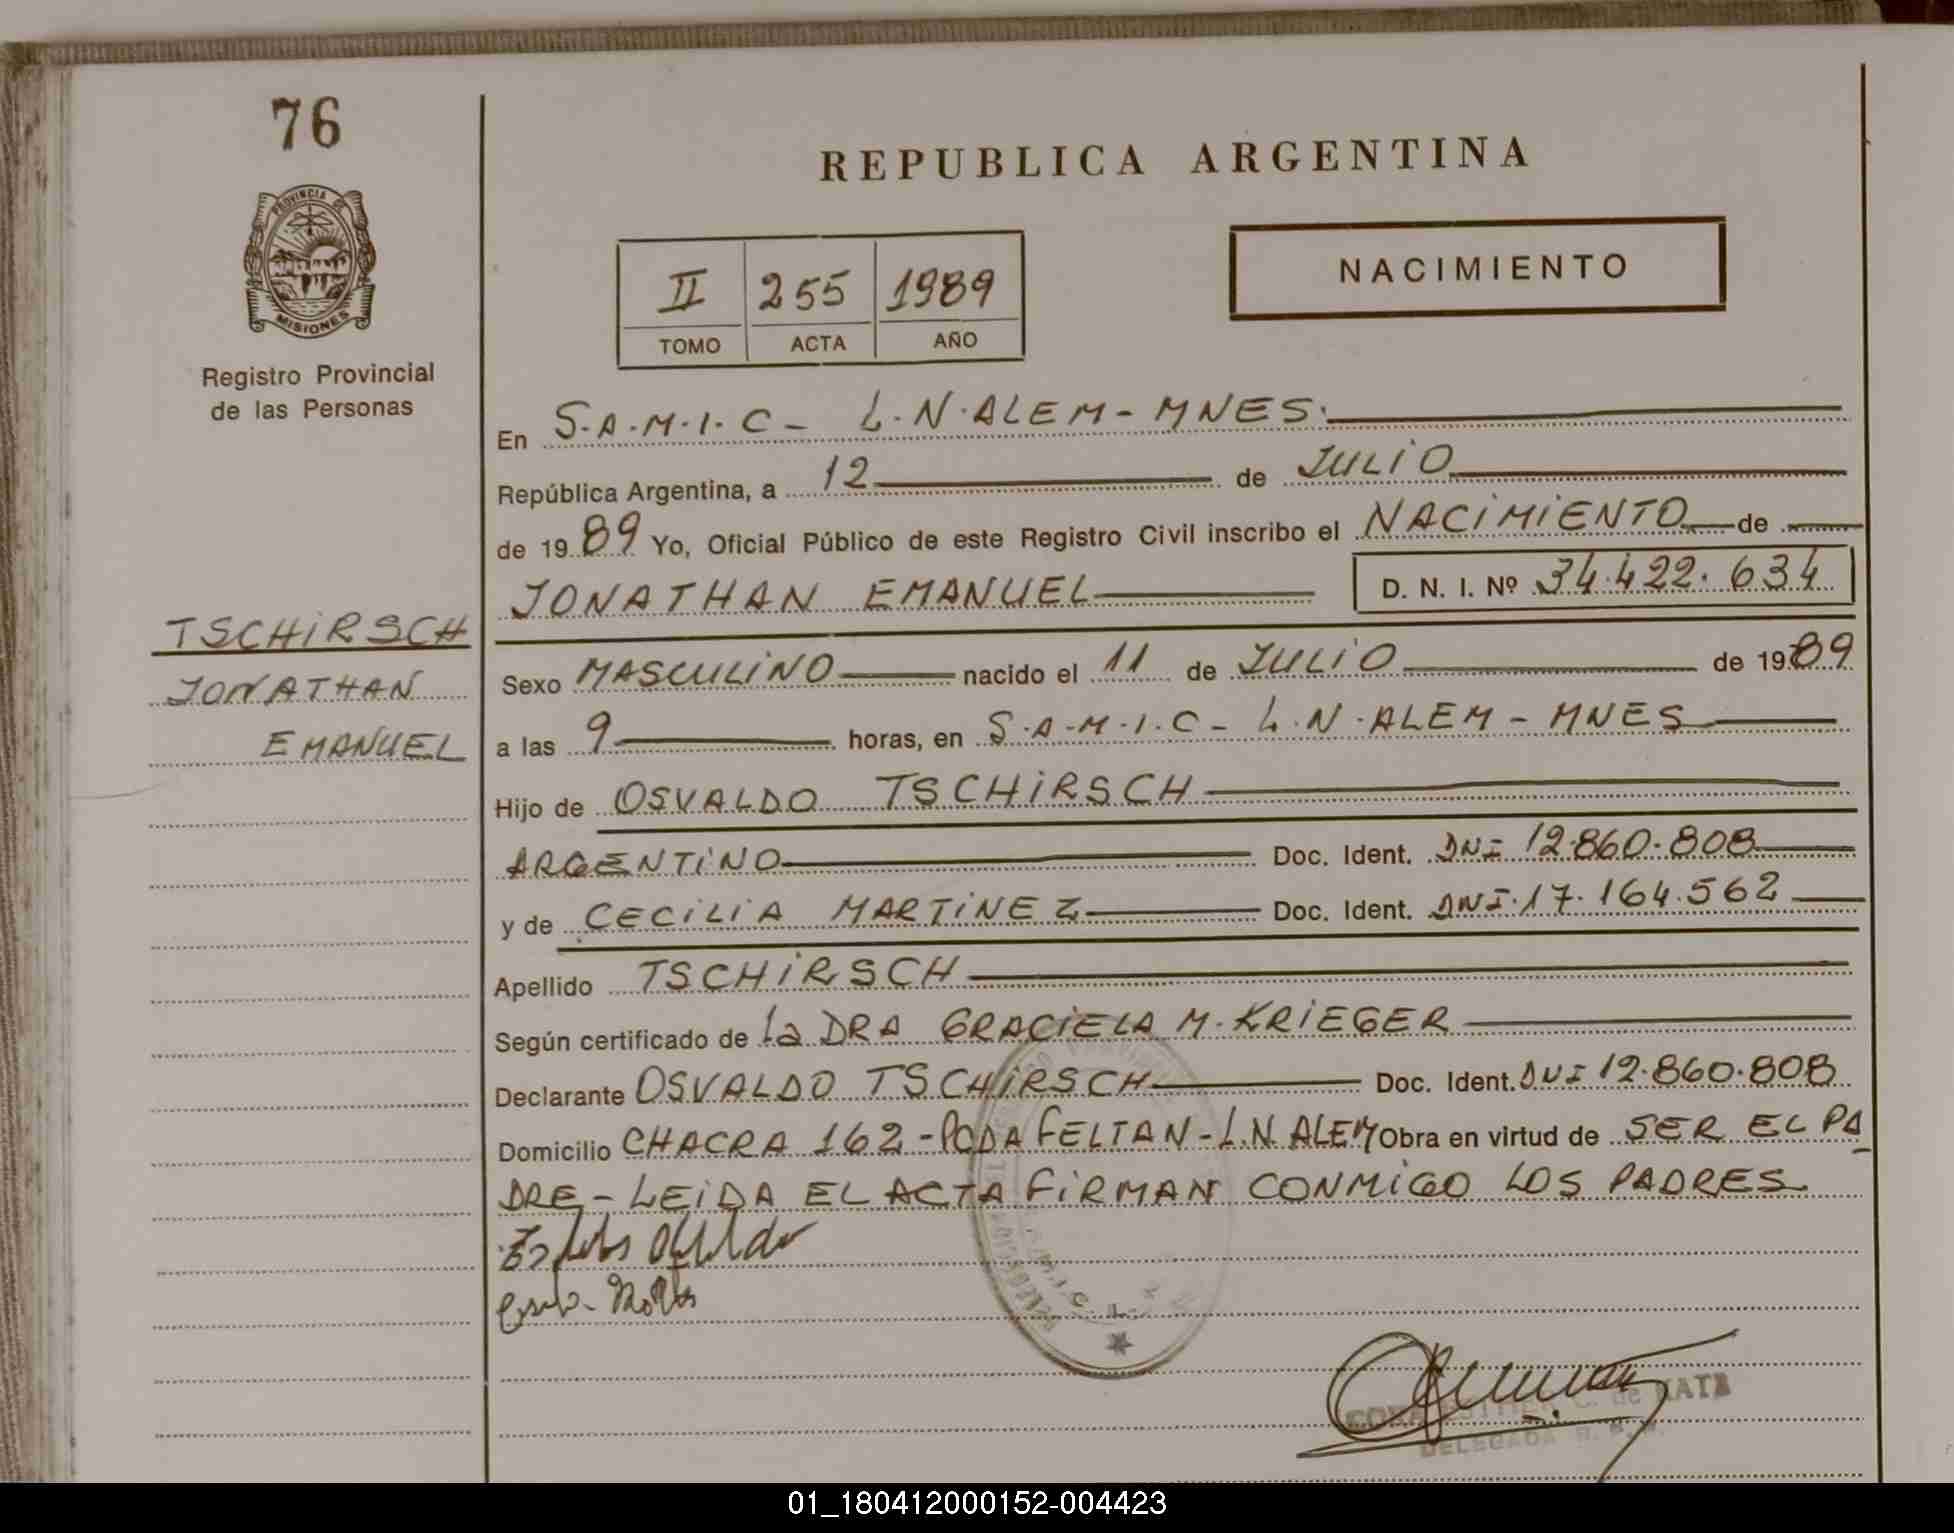 76
REPUBLICA ARGENTINA
PROVINCIA DE
MISIONES
Registro Provincial
de las Personas
NACIMIENTO
II 255 1989
TOMO ACTA AÑO
En S.A.M.I.C - L.N.ALEM - MNES.
República Argentina, a 12 de JULIO
de 1989 Yo, Oficial Público de este Registro Civil inscribo el NACIMIENTO de
JONATHAN EMANUEL D. N. I. Nº 34.422.634
TSCHIRSCH
JONATHAN
EMANUEL
Sexo MASCULINO nacido el 11 de JULIO de 1989
a las 9 horas, en S.A.M.I.C - L.N.ALEM - MNES
Hijo de OSVALDO TSCHIRSCH
ARGENTINO Doc. Ident. DNI 12.860.808
y de CECILIA MARTINEZ Doc. Ident. DNI.17.164.562
Apellido TSCHIRSCH
Según certificado de La DRA GRACIELA M. KRIEGER
Declarante OSVALDO TSCHIRSCH Doc. Ident. DNI 12.860.808
Domicilio CHACRA 162 - PCDA FELTAN - L.N ALEM Obra en virtud de SER EL PA
DRE - LEIDA EL ACTA FIRMAN CONMIGO LOS PADRES.
de KATZ
DELEGADA
01_180412000152-004423